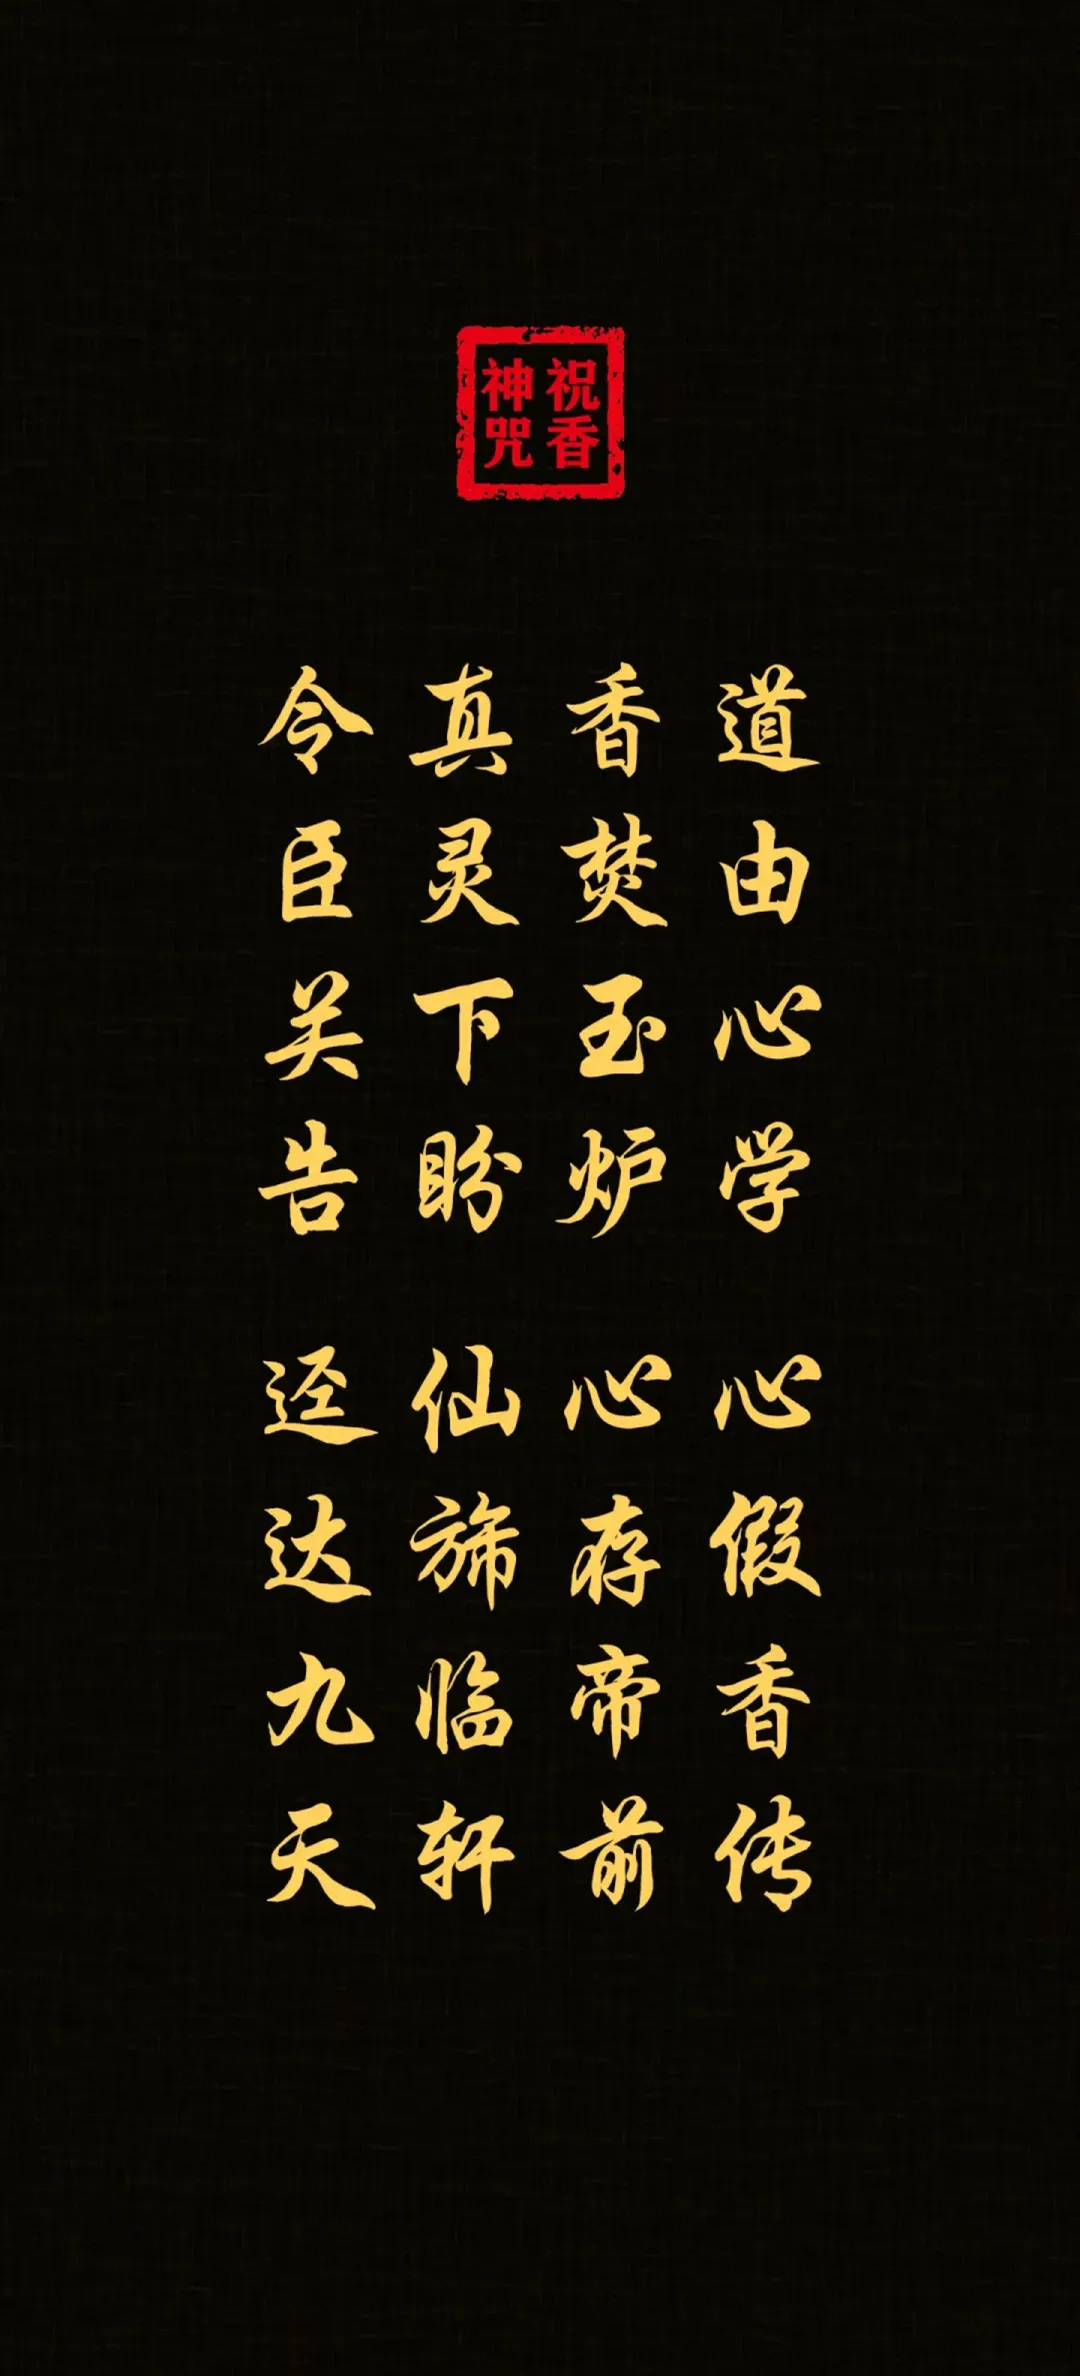 祝香
神咒
道由心学 心假香传
香焚玉炉 心存帝前
真灵下盼 仙旆临轩
令臣关告 迳达九天